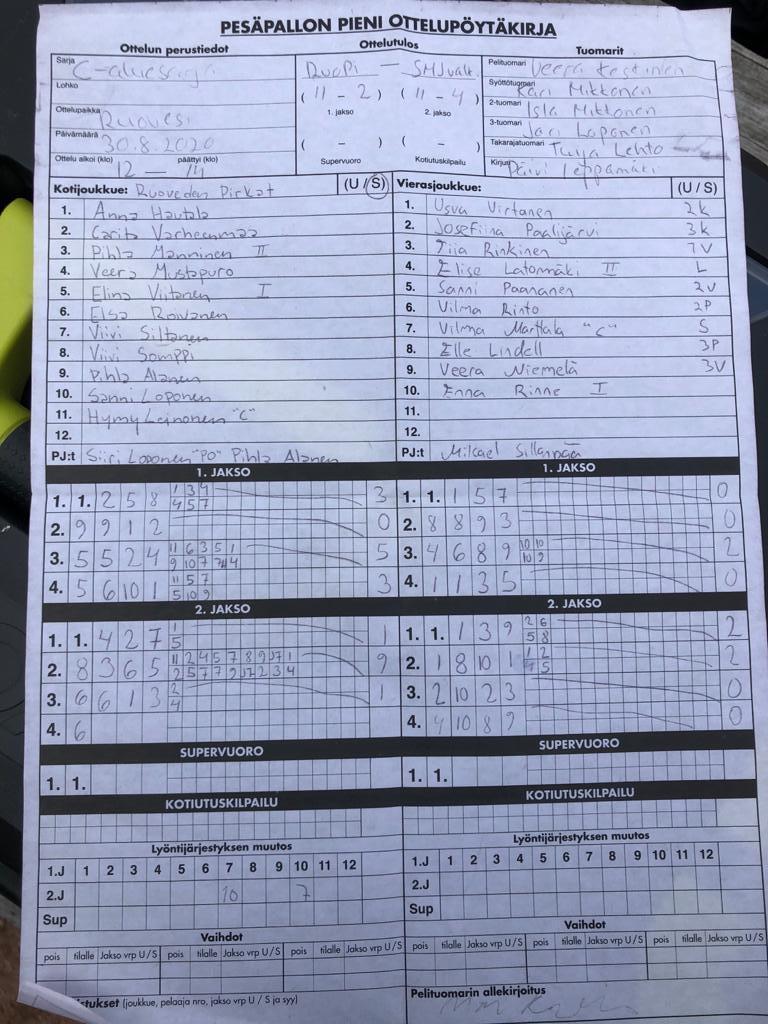 PESÄPALLON PIENI OTTELUPÖYTÄKIRJA
Ottelun perustiedot Ottelutulos Tuomarit
Sarja C-aluesarja
Lohko
Ottelupaikka Ruovesi
Päivämäärä 30.8.2020
Ottelu alkoi (klo) 12 — päättyi (klo) 14
RuoPi — SMJvalk.
(11 - 2) (11 - 4)
1. jakso 2. jakso
( - ) ( - )
Supervuoro Kotiutuskilpailu
Pelituomari Veera Kestinien
Syöttötuomari Kari Mikkonen
2-tuomari Isla Mikkonen
3-tuomari Jari Loponen
Takarajatuomari Tuija Lehto
Kirjuri Päivi Leppämäki
Kotijoukkue: Ruoveden Pirkat (U / S)
1. Anna Hautala
2. Carita Varheenmaa
3. Pihla Manninen II
4. Veera Mustapuro
5. Elina Viitanen I
6. Elsa Roivanen
7. Viivi Siltanen
8. Viivi Somppi
9. Pihla Alanen
10. Sanni Loponen
11. Hymy Leinonen "C"
12.
PJ:t Siiri Loponen "PO" Pihla Alanen
Vierasjoukkue: (U / S)
1. Usva Virtanen 2k
2. Josefiina Paalijärvi 3k
3. Tiia Rinkinen 1V
4. Elise Latomäki II L
5. Sanni Paananen 2V
6. Vilma Rinto 2P
7. Vilma Marttala "C" S
8. Elle Lindell 3P
9. Veera Niemelä 3V
10. Enna Rinne I
11.
12.
PJ:t Mikael Sillanpää
1. JAKSO
1. 1. 2 5 8 1 3 4 3
4 5 7
2. 9 9 1 2 0
3. 5 5 2 4 11 6 3 5 1 5
9 10 7 4
4. 5 6 10 1 11 5 7 3
5 10 9
1. JAKSO
1. 1. 1 5 7 0
2. 8 8 9 3 0
3. 4 6 8 9 10 10 2
10 9
4. 1 1 3 5 0
2. JAKSO
1. 1. 4 2 7 1 1
5
2. 8 3 6 5 11 2 4 5 7 8 9 1 9
2 5 7 7 2 3 4
3. 6 6 1 3 2 1
4
4. 6
2. JAKSO
1. 1. 1 3 9 2 6 2
5 8
2. 1 8 10 1 1 2 2
4 5
3. 2 10 2 3 0
4. 4 10 8 9 0
SUPERVUORO
1. 1.
SUPERVUORO
1. 1.
KOTIUTUSKILPAILU
KOTIUTUSKILPAILU
Lyöntijärjestyksen muutos
1.J 1 2 3 4 5 6 7 8 9 10 11 12
2.J 10 7
Sup
Lyöntijärjestyksen muutos
1.J 1 2 3 4 5 6 7 8 9 10 11 12
2.J
Sup
Vaihdot
pois tilalle Jakso vrp U / S pois tilalle Jakso vrp U / S pois tilalle Jakso vrp U / S
Vaihdot
pois tilalle Jakso vrp U / S pois tilalle Jakso vrp U / S pois tilalle Jakso vrp U / S
(joukkue, pelaaja nro, jakso vrp U / S ja syy)
Pelituomarin allekirjoitus